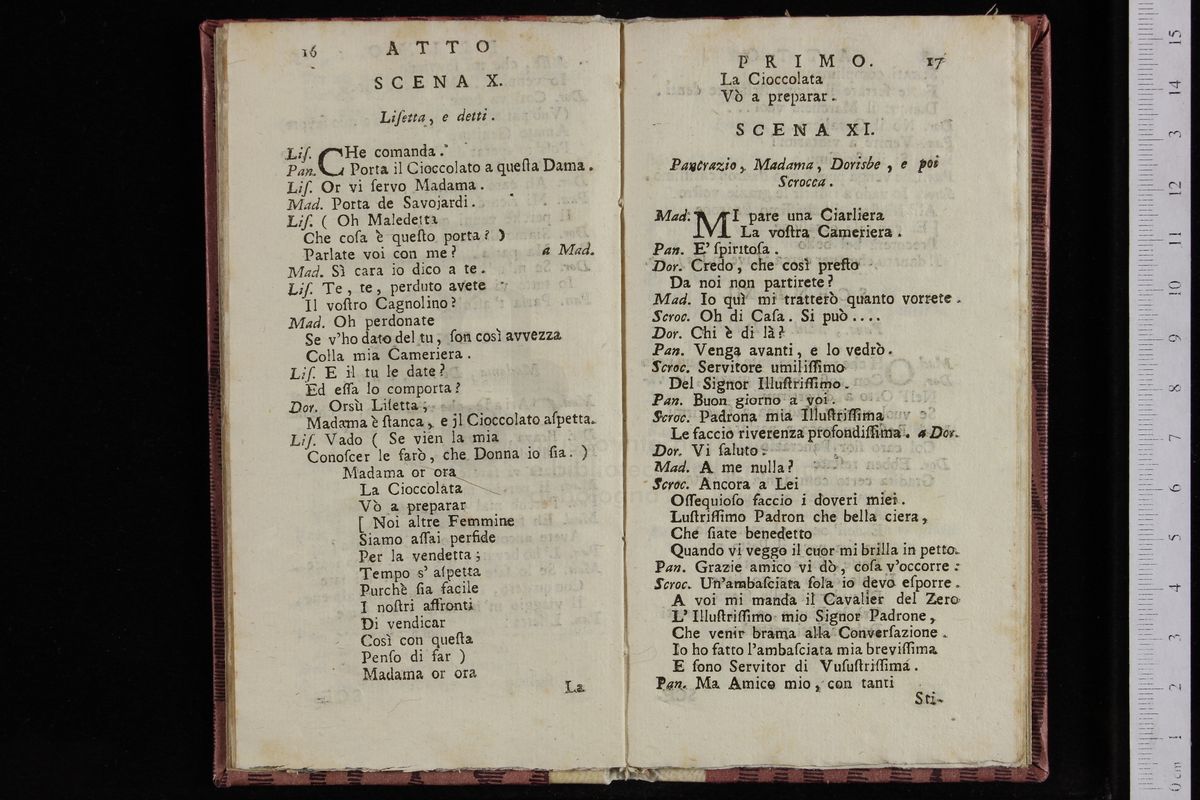 16 ATTO
SCENA X.
Liſetta, e detti.
Liſ. CHe comanda.
Pan. Porta il Cioccolato a queſta Dama.
Liſ. Or vi ſervo Madama.
Mad. Porta de Savojardi.
Liſ. ( Oh Maledetta
Che coſa è queſto porta? )
Parlate voi con me? a Mad.
Mad. Sì cara io dico a te.
Liſ. Te, te, perduto avete
Il voſtro Cagnolino?
Mad. Oh perdonate
Se v'ho dato del tu, ſon così avvezza
Colla mia Cameriera.
Liſ. E il tu le date?
Ed eſſa lo comporta?
Dor. Orsù Liſetta;
Madama è ſtanca, e jl Cioccolato aſpetta.
Liſ. Vado ( Se vien la mia
Conoſcer le farò, che Donna io ſia. )
Madama or ora
La Cioccolata
Vò a preparar
[ Noi altre Femmine
Siamo aſſai perfide
Per la vendetta;
Tempo s' aſpetta
Purchè ſia facile
I noſtri affronti
Di vendicar
Così con queſta
Penſo di far )
Madama or ora
La
PRIMO. 17
La Cioccolata
Vò a preparar.
SCENA XI.
Pancrazio, Madama, Dorisbe, e poi
Scrocca.
Mad. MI pare una Ciarliera
La voſtra Cameriera.
Pan. E' ſpiritoſa.
Dor. Credo, che così preſto
Da noi non partirete?
Mad. Io quì mi tratterò quanto vorrete.
Scroc. Oh di Caſa. Si può....
Dor. Chi è di là?
Pan. Venga avanti, e lo vedrò.
Scroc. Servitore umiliſſimo
Del Signor Illuſtriſſimo.
Pan. Buon giorno a voi.
Scroc. Padrona mia Illuſtriſſima
Le faccio riverenza profondiſſima. a Dor.
Dor. Vi ſaluto.
Mad. A me nulla?
Scroc. Ancora a Lei
Oſſequioſo faccio i doveri miei.
Luſtriſſimo Padron che bella ciera,
Che ſiate benedetto
Quando vi veggo il cuor mi brilla in petto.
Pan. Grazie amico vi dò, coſa v'occorre:
Scroc. Un'ambaſciata ſola io devo eſporre.
A voi mi manda il Cavalier del Zero
L' Illuſtriſſimo mio Signor Padrone,
Che venir brama alla Converſazione.
Io ho fatto l'ambaſciata mia breviſſima
E ſono Servitor di Vuſuſtriſſima.
Pan. Ma Amico mio, con tanti
Sti-
15
14
13
12
11
10
9
8
7
6
5
4
3
2
1
0 cm